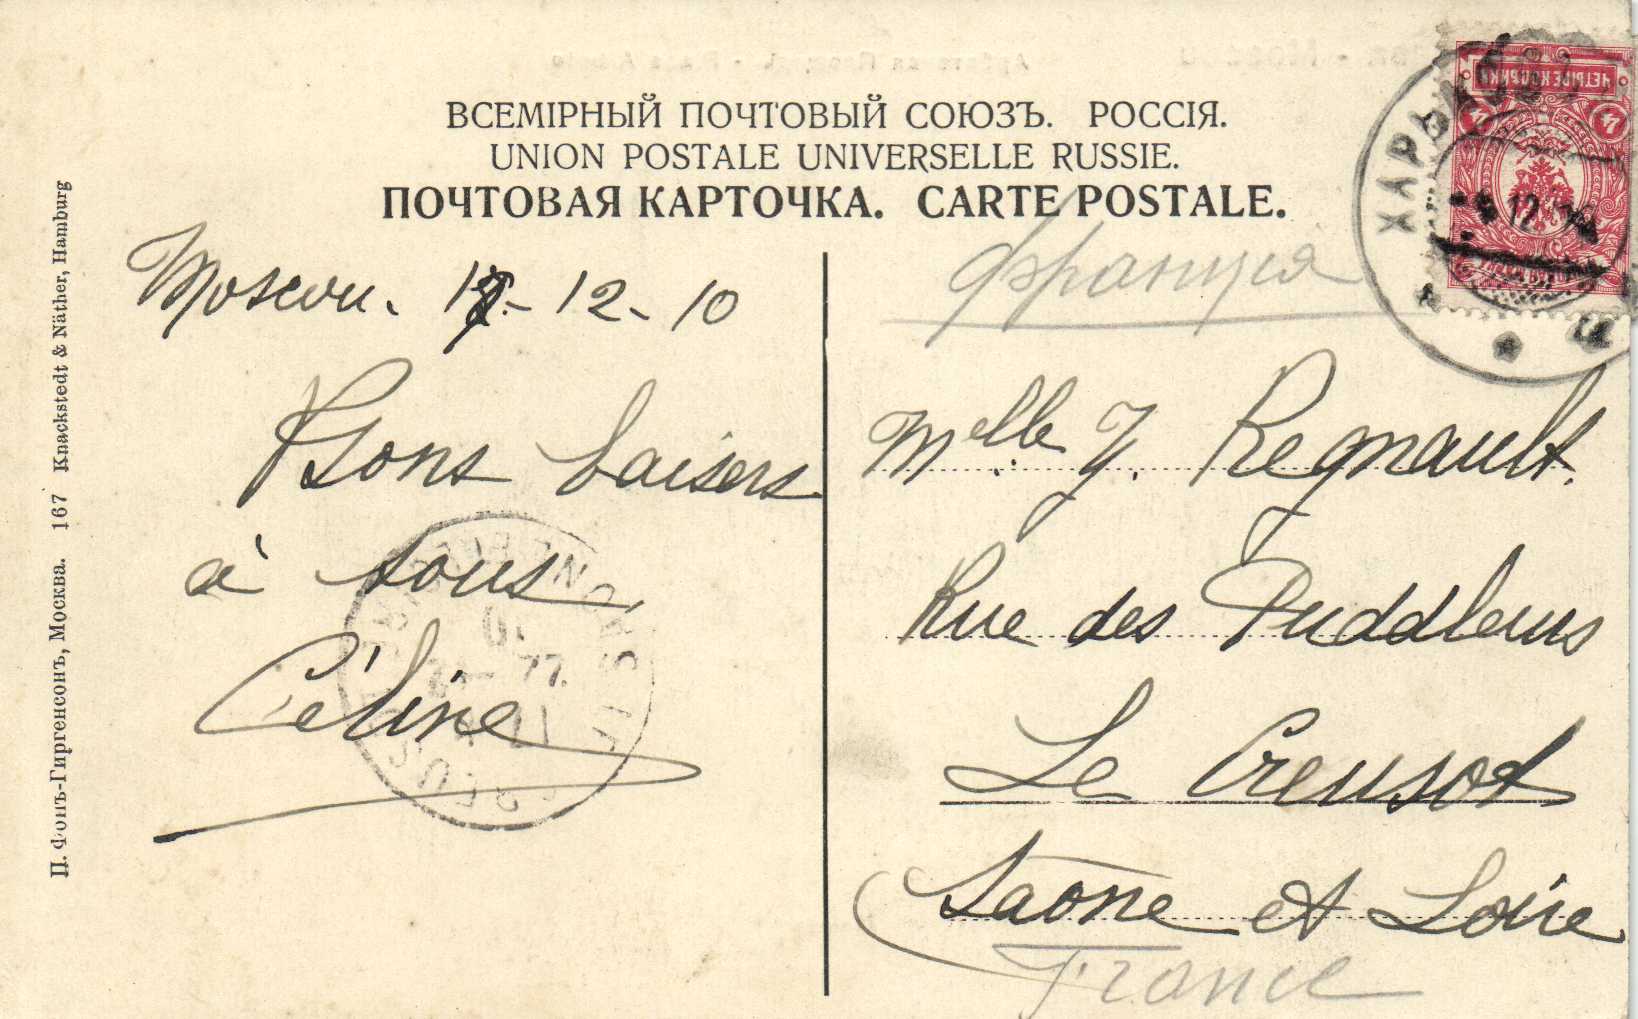 ВСЕМІРНЫЙ ПОЧТОВЫЙ СОЮЗЪ. РОССІЯ.
UNION POSTALE UNIVERSELLE RUSSIE.
ПОЧТОВАЯ КАРТОЧКА. CARTE POSTALE.
П. Фонъ-Гиргенсонъ, Москва. 167 Knackstedt & Näther, Hamburg
Moscou. - 12 - 10
Bons baisers
à tous,
Céline
ХАРЬКОВ
12
ЧЕТЫРЕ КОПѢЙКИ
4 4
Франция
Melle Y. Regnault.
Rue des Puddleurs
Le Creusot
Saone et Loire
France